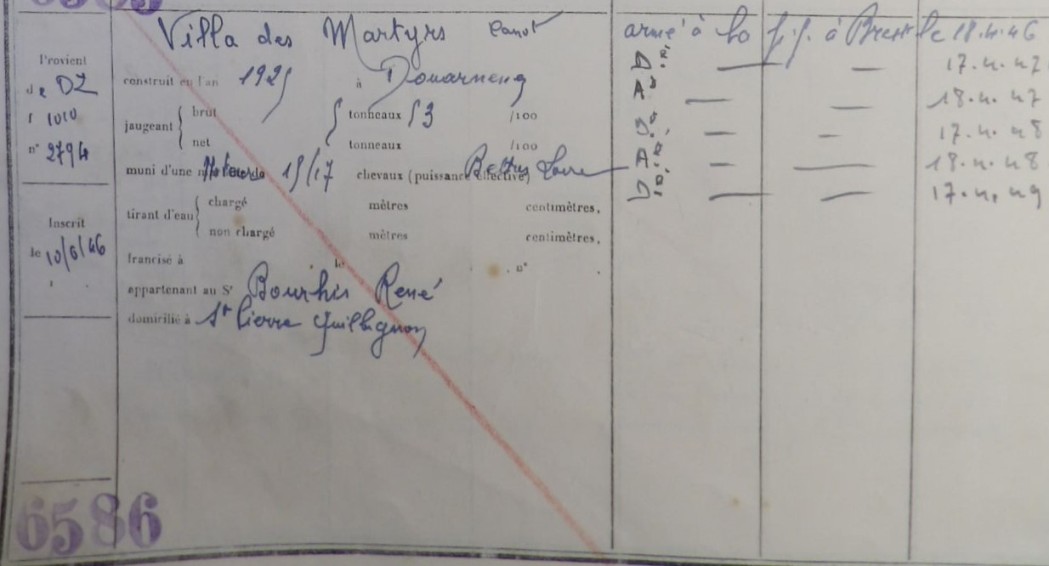 Villa des Martyrs canot
Provient
de DZ
f° 1010
n° 2794
Inscrit
le 10/6/46
construit en l'an 1925 à Douarnenez
jaugeant { brut { tonneaux 53 /100
net { tonneaux /100
muni d'une 15/17 chevaux (puissance effective)
tirant d'eau { chargé mètres centimètres,
non chargé mètres centimètres,
francisé à le , n°
appartenant au Sr Bourhis René
domicilié à St Pierre Quilbignon
6586
armé à la à Brest le 18.4.46
D° — — 17.4.47
A° — — 18.4.47
D° — — 17.4.48
A° — — 18.4.48
D° — — 17.4.49